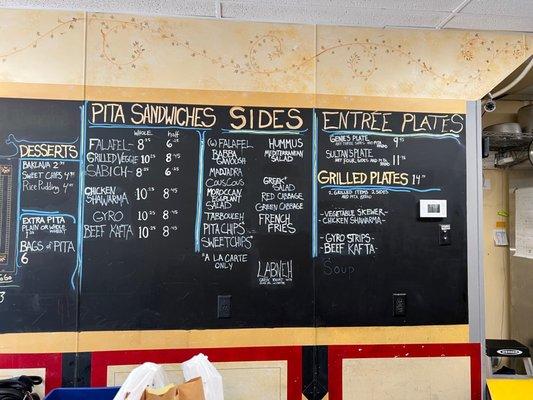 DESSERTS
BAKLAVA 2
SWEET 4
Rice Pudding 4
EXTRA PITA
PLAIN OR
WHOLE
WHEAT
BAGS of PITA
6
PITA SANDWICHES
WHOLE half
FALAFEL- 8 6
GRILLED VEGGIE 10 8
SABICH- 8 6
CHICKEN
SHAWARMA 10 8
GYRO 10 8
BEEF KAFTA 10 8
SIDES
(W) FALAFEL
BABBA
GANOUSH
MATADRA
COUSCOUS
MOROCCAN
EGGPLANT
SALAD
TABBOULEH
PITA CHIPS
SWEETCHIPS
*A LA CARTE
ONLY
HUMMUS
MEDITERRANEAN
SALAD
GREEK
SALAD
RED CABBAGE
GREEN CABBAGE
FRENCH
FRIES
LABNEH
ENTRÉE PLATES
GENIE'S PLATE 9
SULTAN'S PLATE 11
GRILLED PLATES 14
2 GRILLED ITEMS 2 SIDES
AND PITA BREAD
-VEGETABLE SKEWER-
-CHICKEN SHAWARMA-
-GYRO STRIPS-
-BEEF KAFTA-
Soup